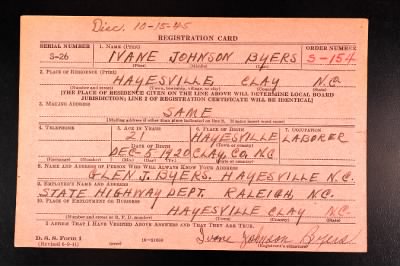 Disc. 10-15-45
REGISTRATION CARD
SERIAL NUMBER 1. NAME (Print) ORDER NUMBER
S-26 IVANE JOHNSON BYERS S-154
(First) (Middle) (Last)
2. PLACE OF RESIDENCE (Print)
HAYESVILLE, CLAY N.C.
(Number and street) (Town, township, village, or city) (County) (State)
[THE PLACE OF RESIDENCE GIVEN ON THE LINE ABOVE WILL DETERMINE LOCAL BOARD
JURISDICTION; LINE 2 OF REGISTRATION CERTIFICATE WILL BE IDENTICAL]
3. MAILING ADDRESS
SAME
[Mailing address if other than place indicated on line 2. If same insert word same]
4. TELEPHONE 5. AGE IN YEARS 6. PLACE OF BIRTH 7. OCCUPATION
21 HAYESVILLE LABORER
DATE OF BIRTH (Town or county)
DEC-5-1920 CLAY, CO. N.C.
(Exchange) (Number) (Mo.) (Day) (Yr.) (State or country)
8. NAME AND ADDRESS OF PERSON WHO WILL ALWAYS KNOW YOUR ADDRESS
GLEN J. BYERS, HAYESVILLE N.C.
9. EMPLOYER'S NAME AND ADDRESS
STATE HIGHWAY DEPT. RALEIGH, N.C.
10. PLACE OF EMPLOYMENT OR BUSINESS
HAYESVILLE CLAY N.C.
(Number and street or R. F. D. number) (Town) (County) (State)
I AFFIRM THAT I HAVE VERIFIED ABOVE ANSWERS AND THAT THEY ARE TRUE.
D. S. S. Form 1 Ivane Johnson Byers
(Revised 6-9-41) (over) 16-21630 (Registrant's signature)